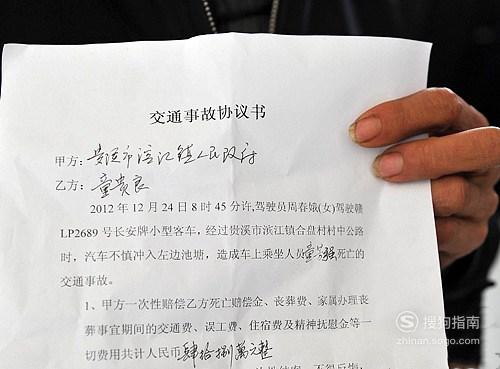 交通事故协议书
甲方：贵溪市滨江镇人民政府
乙方：童贵良
2012年12月24日8时45分许,驾驶员周春娥(女)驾驶赣
LP2689号长安牌小型客车，经过贵溪市滨江镇合盘村村中公路
时，汽车不慎冲入左边池塘，造成车上乘坐人员童 强死亡的
交通事故。
1、甲方一次性赔偿乙方死亡赔偿金、丧葬费、家属办理丧
葬事宜期间的交通费、误工费、住宿费及精神抚慰金等一
切费用共计人民币肆拾捌萬元整
不得反悔
搜狗指南
zhinan.sogou.com